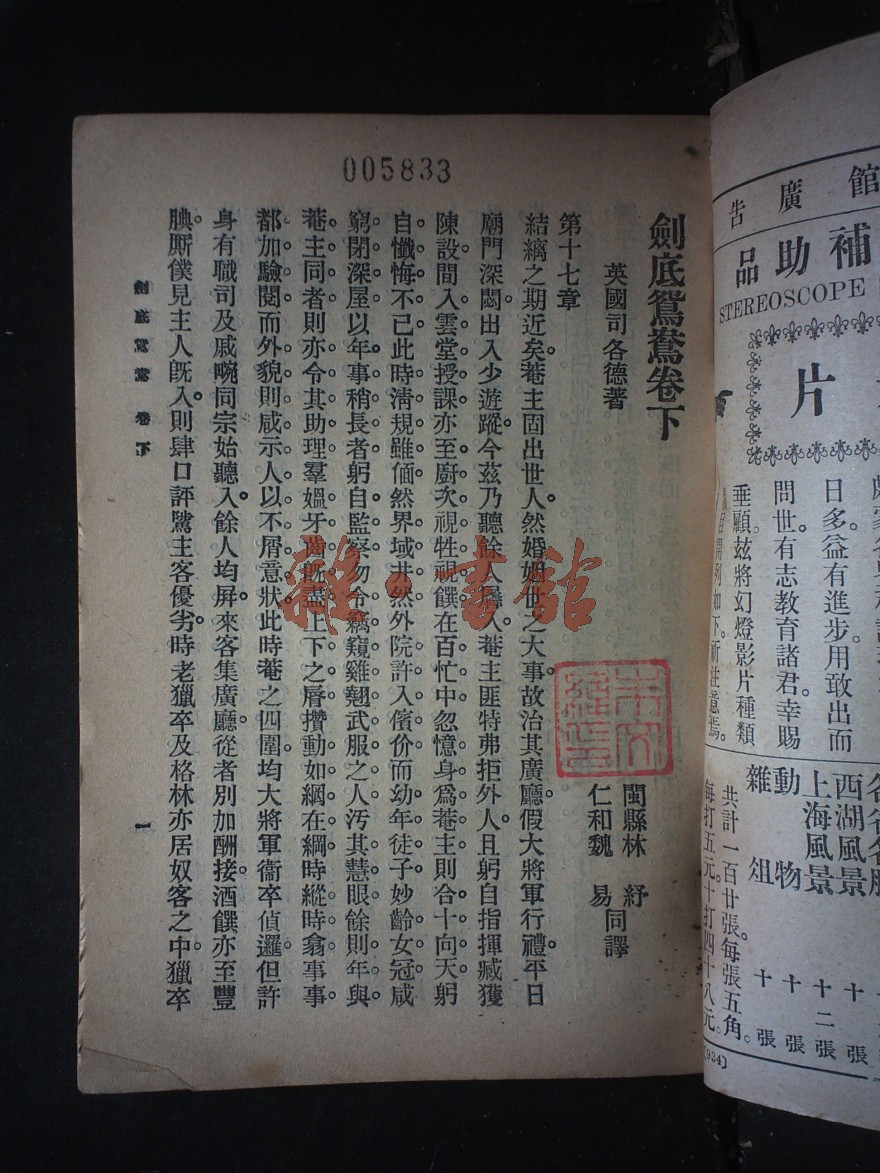 005833
劍底鴛鴦卷下
英國司各德著
閩縣林 紓
仁和魏 易
同譯
第十七章
結縭之期近矣。菴主固出世人。然婚姻世之大事。故治其廣廳。假大將軍行禮。平日
廟門深閟。出入少遊蹤。今茲乃聽餘人 入。菴主匪特弗拒外人。且躬自指揮臧獲
陳設。間入雲堂授課。亦至廚次視牲視饌。在百忙中忽憶身爲菴主。則合十向天。躬
自懺悔不已。此時清規雖偭。然界域井然。外院許入儐价。而幼年徒子妙齡女冠。咸
窮閉深屋。以年事稍長者躬自監察。勿令竊窺雞翹武服之人。汚其慧眼。餘則年與
菴主同者。則亦令其助理。羣媼牙齒旣盡。上下之脣攢動。如綱在綱。時縱時翕。事事
都加驗閱。而外貌則咸示人以不屑意狀。此時菴之四圍。均大將軍衞卒偵邏。但許
身有職司及戚畹同宗始聽入。餘人均屏。來客集廣廳。從者別加酬接。酒饌亦至豐
腆。厮僕見主人旣入。則肆口評騭主客優劣。時老獵卒及格林亦居奴客之中。獵卒
劍底鴛鴦 卷下
一
館廣告
補助品
STEREOSCOPE
片
日多。益有進步。用敢出而
問世。有志教育諸君。幸賜
垂顧。茲將幻燈影片種類
開列如下。祈注意焉。
西湖風景 十 張
上海風景 十二張
動物 十 張
雜俎 十 張
共計一百廿張。每張五角。
每打五元。十打四十八元。
(934)
雜·書館